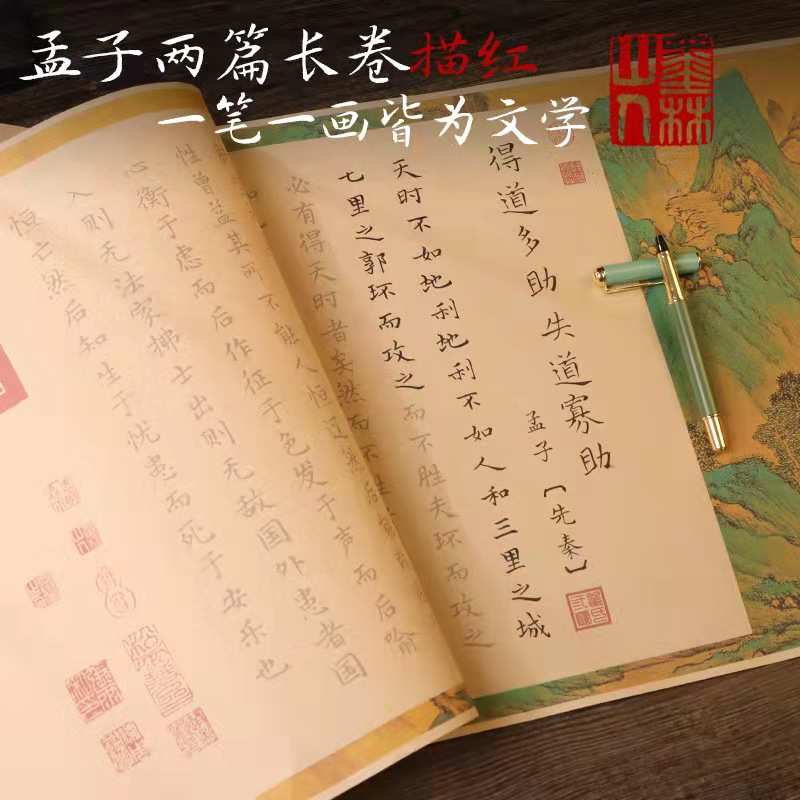 孟子两篇长卷描红
一笔一画皆为文学
得道多助失道寡助
孟子〔先秦〕
天时不如地利地利不如人和三里之城
七里之郭环而攻之而不胜夫环而攻之
必有得天时者矣然而不胜
性曾益其所不能人恒过然后
心衡于虑而后作征于色发于声而后喻
入则无法家拂士出则无敌国外患者国
恒亡然后知生于忧患而死于安乐也